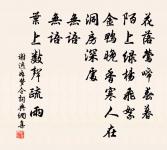 花落鶯啼春暮
陌上綠楊飛絮
金鴨晚香寒人在
洞房深處
無語
無語
葉上數聲疏雨
謝逸如夢令詞典網書